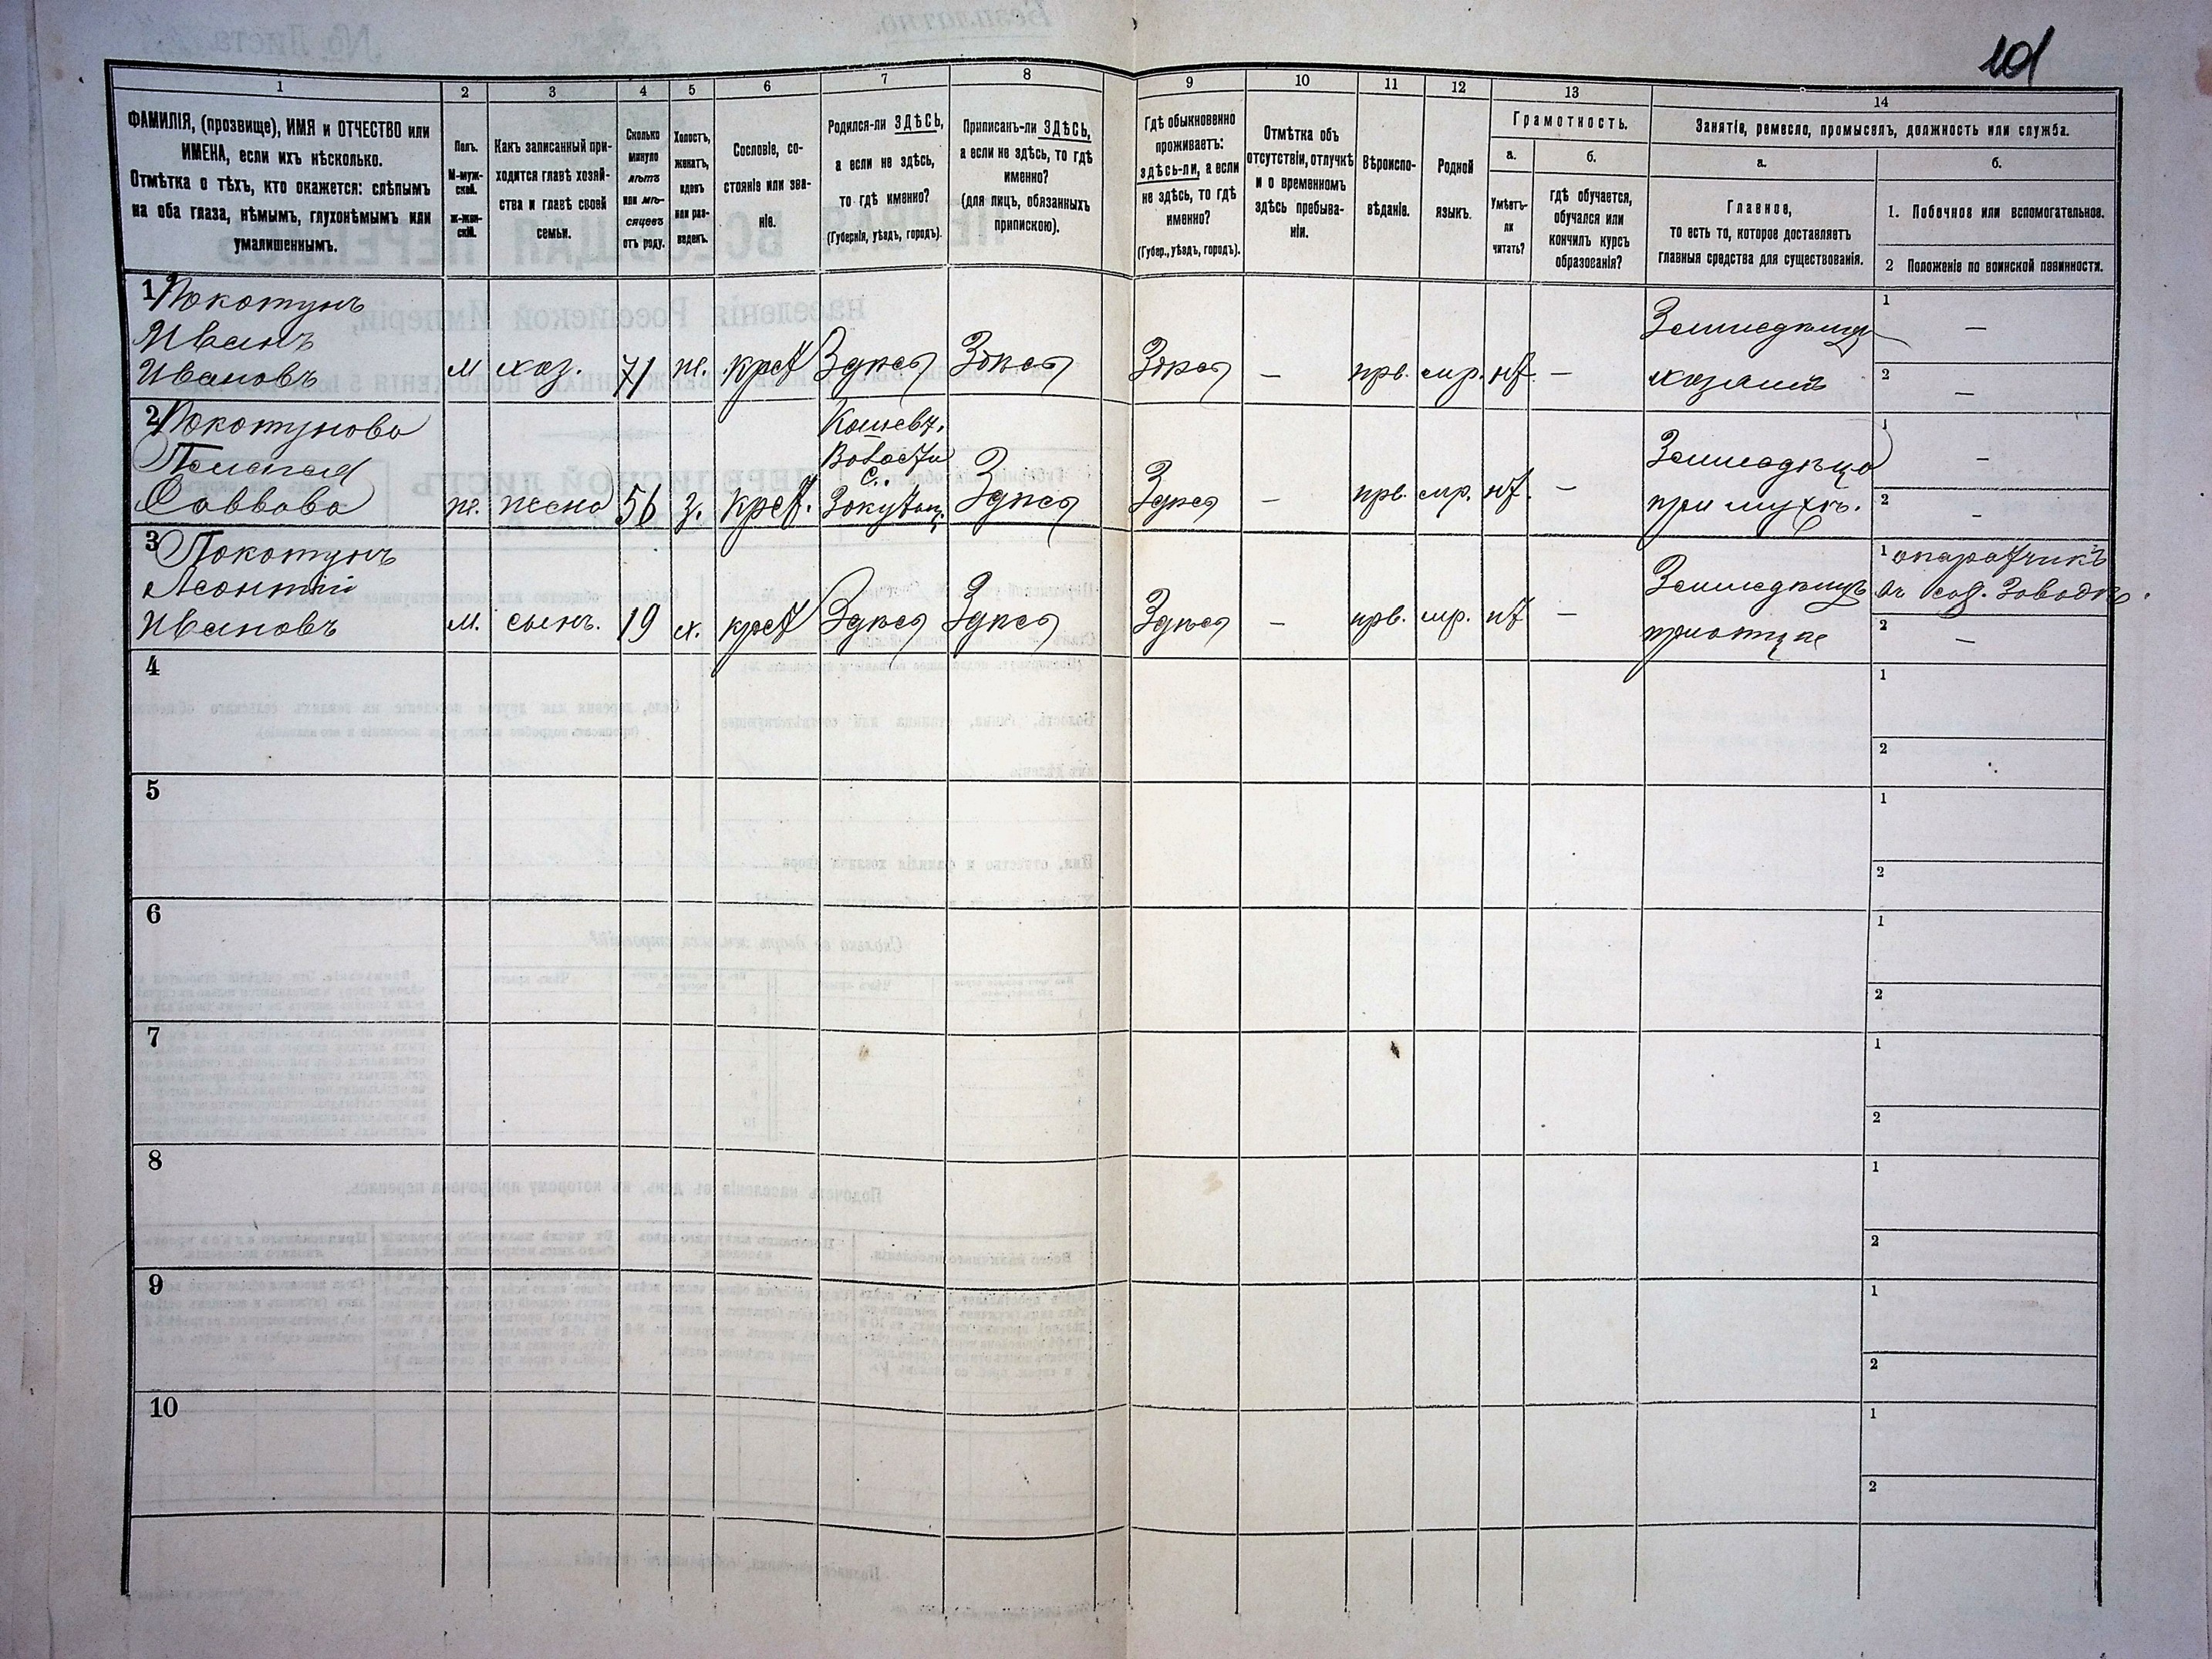 101
1
2
3
4
5
6
7
8
9
10
11
12
13
14
ФАМИЛІЯ, (прозвище), ИМЯ и ОТЧЕСТВО или
ИМЕНА, если ихъ нѣсколько.
Отмѣтка о тѣхъ, кто окажется: слѣпымъ
на оба глаза, нѣмымъ, глухонѣмымъ или
умалишеннымъ.
Полъ.
М-муж-
ской.
ж-жен-
скій.
Какъ записанный при-
ходится главѣ хозяй-
ства и главѣ своей
семьи.
Сколько
минуло
лѣтъ
или мѣ-
сяцевъ
отъ роду.
Холостъ,
женатъ,
вдовъ
или раз-
веденъ.
Сословіе, со-
стояніе или зва-
ніе.
Родился-ли ЗДѢСЬ,
а если не здѣсь,
то гдѣ именно?
(Губернія, уѣздъ, городъ).
Приписанъ-ли ЗДѢСЬ,
а если не здѣсь, то гдѣ
именно?
(для лицъ, обязанныхъ
припискою).
Гдѣ обыкновенно
проживаетъ:
здѣсь-ли, а если
не здѣсь, то гдѣ
именно?
(Губер., уѣздъ, городъ).
Отмѣтка объ
отсутствіи, отлучкѣ
и о временномъ
здѣсь пребыва-
ніи.
Вѣроиспо-
вѣданіе.
Родной
языкъ.
Грамотность.
а.
Умѣетъ-
ли
читать?
б.
гдѣ обучается,
обучался или
кончилъ курсъ
образованія?
Занятіе, ремесло, промыселъ, должность или служба.
а.
Главное,
то есть то, которое доставляетъ
главныя средства для существованія.
б.
1. Побочное или вспомогательное.
2 Положеніе по воинской повинности.
1 Покотунъ
Иванъ
Ивановъ
м хоз. 71 ж. крст Здѣсь Здѣсь Здѣсь — прв. мр. нт. —
Земледѣлецъ
хозяинъ
1 —
2 —
2 Покотунова
Пелагея
Саввова
ж. жена 56 з. крст.
Кашев.
Волости
с.
Здѣсь Здѣсь — прв. мр. нт. —
Земледѣлца
при мужѣ.
1 —
2 —
3 Покотунъ
Леонтій
Ивановъ
м. сынъ. 19 х. крст Здѣсь Здѣсь Здѣсь — прв. мр. нт —
Земледѣлецъ
при отцѣ
1 опаратчикъ
въ Заводѣ.
2 —
4
1
2
5
1
2
6
1
2
7
1
2
8
1
2
9
1
2
10
1
2